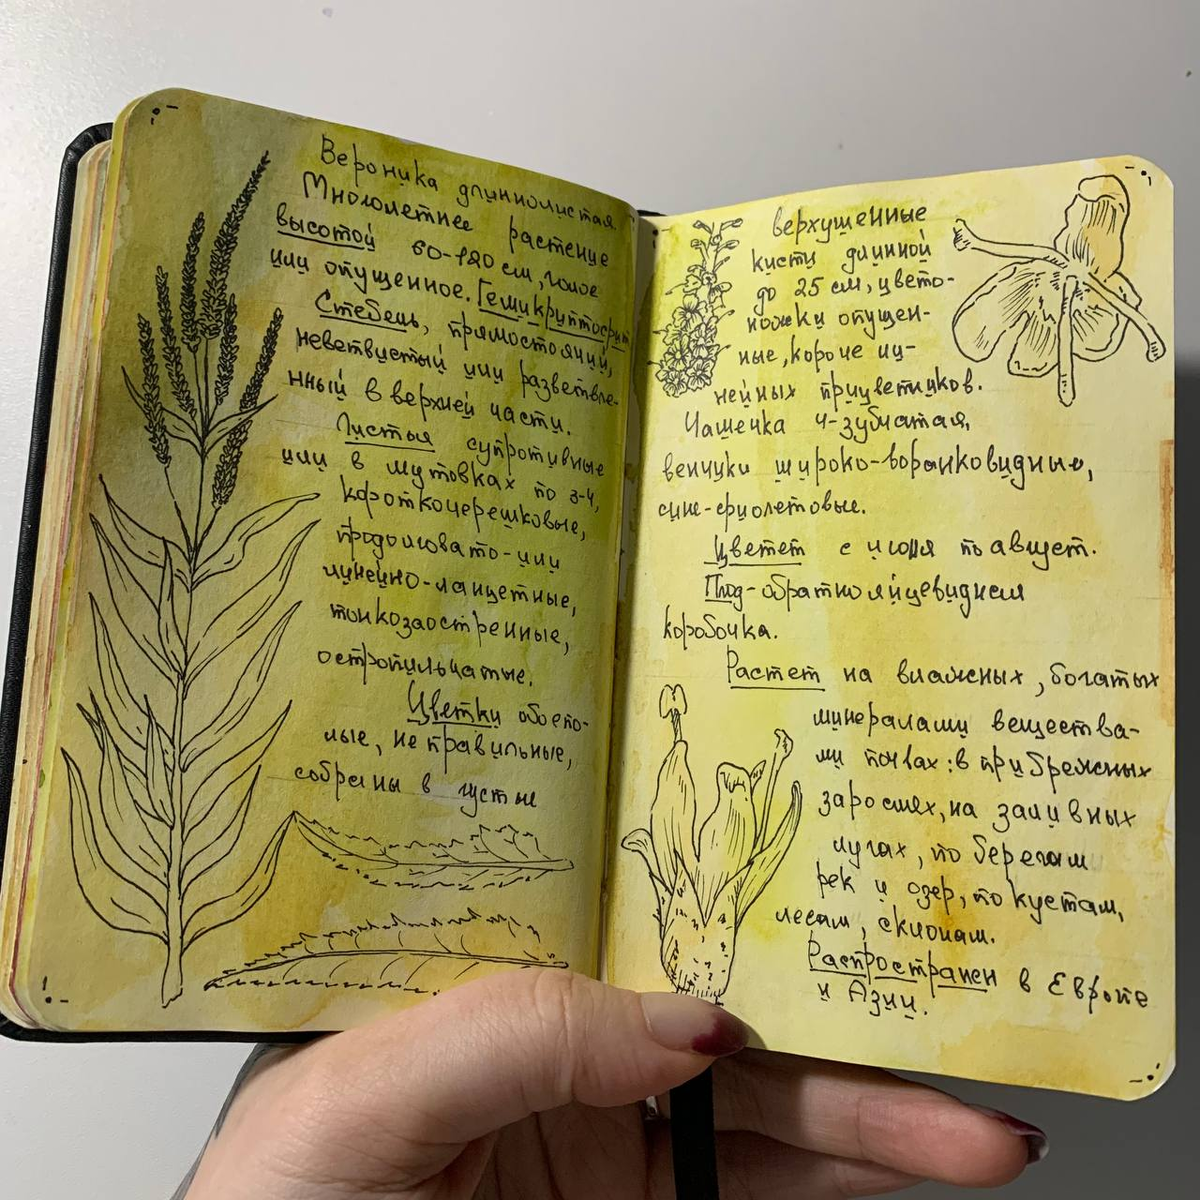 Вероника длиннолистая
Многолетнее растение
высотой 60-120 см, голое
или опушенное. Гемикриптофит
Стебель, прямостоячий,
неветвистый или разветвле-
нный в верхней части.
Листья супротивные
или в мутовках по 3-4,
короткочерешковые,
продолговато-или
линейно-ланцетные,
тонкозаостренные,
остропильчатые.
Цветки обоепо-
лые, неправильные,
собраны в густые
верхушечные
кисти длинной
до 25 см, цвето-
ножки опушен-
ные, короче ли-
нейных прицветников.
Чашечка 4-зубчатая,
венчики широко-воронковидные,
сине-фиолетовые.
Цветет с июня по август.
Плод-обратнояйцевидная
коробочка.
Растет на влажных, богатых
минералами вещества-
ми почвах: в прибрежных
зарослях, на заливных
лугах, по берегам
рек и озер, по кустам,
лесам, склонам.
Распространен в Европе
и Азии.